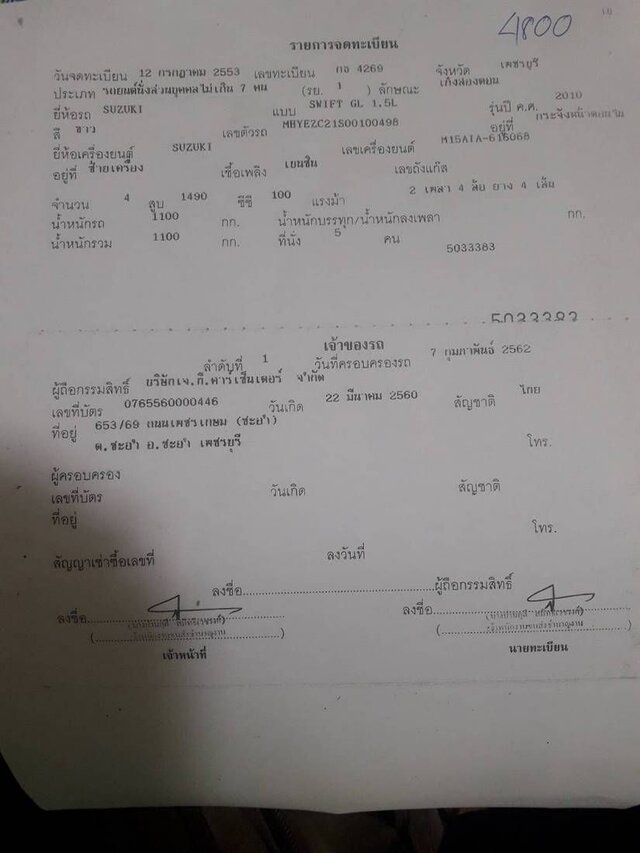 4800
(1)
รายการจดทะเบียน
วันจดทะเบียน 12 กรกฎาคม 2553 เลขทะเบียน กธ 4269 จังหวัด เพชรบุรี
ประเภท รถยนต์นั่งส่วนบุคคลไม่เกิน 7 คน (รย. 1 ) ลักษณะ เก๋งสองตอน
ยี่ห้อรถ SUZUKI แบบ SWIFT GL 1.5L รุ่นปี ค.ศ. 2010
สี ขาว เลขตัวรถ MHYEZC21S00100498 อยู่ที่ กระจังหน้าตอนใน
ยี่ห้อเครื่องยนต์ SUZUKI เลขเครื่องยนต์ M15AIA-616068
อยู่ที่ ซ้ายเครื่อง เชื้อเพลิง เบนซิน เลขถังแก๊ส
จำนวน 4 สูบ 1490 ซีซี 100 แรงม้า 2 เพลา 4 ล้อ ยาง 4 เส้น
น้ำหนักรถ 1100 กก. น้ำหนักบรรทุก/น้ำหนักลงเพลา กก.
น้ำหนักรวม 1100 กก. ที่นั่ง 5 คน
5033383
5033383
เจ้าของรถ
ลำดับที่ 1 วันที่ครอบครองรถ 7 กุมภาพันธ์ 2562
ผู้ถือกรรมสิทธิ์ บริษัทเจ.กี.คาร์เซ็นเตอร์ จำกัด
เลขที่บัตร 0765560000446 วันเกิด 22 มีนาคม 2560 สัญชาติ ไทย
ที่อยู่ 653/69 ถนนเพชรเกษม (ชะอำ)
ต.ชะอำ อ.ชะอำ เพชรบุรี โทร.
ผู้ครอบครอง
เลขที่บัตร วันเกิด สัญชาติ
ที่อยู่
โทร.
สัญญาเช่าซื้อเลขที่ ลงวันที่
ลงชื่อ ผู้ถือกรรมสิทธิ์
ลงชื่อ ลงชื่อ
เจ้าพนักงานขนส่งชำนาญงาน เจ้าพนักงานขนส่งชำนาญงาน
เจ้าหน้าที่ นายทะเบียน